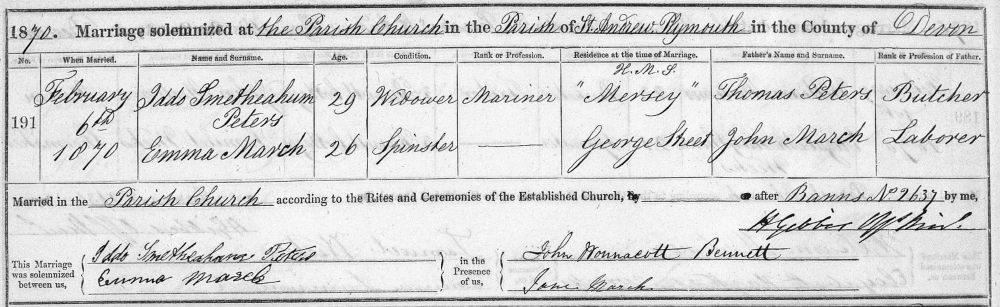 1870. Marriage solemnized at the Parish Church in the Parish of St. Andrew Plymouth in the County of Devon
No. When Married. Name and Surname. Age. Condition. Rank or Profession. Residence at the time of Marriage. Father's Name and Surname. Rank or Profession of Father.
H.M.S.
February Iddo Smetheahum 29 Widower Mariner "Mersey" Thomas Peters Butcher
191 6th Peters
1870 Emma March 26 Spinster George Street John March Laborer
Married in the Parish Church according to the Rites and Ceremonies of the Established Church, by or after Banns No 2637 by me,
H Gibbes
This Marriage was solemnized between us,
Iddo Smetheaham Peters
Emma March
in the Presence of us,
John Wonnacott Bennett
Jane March